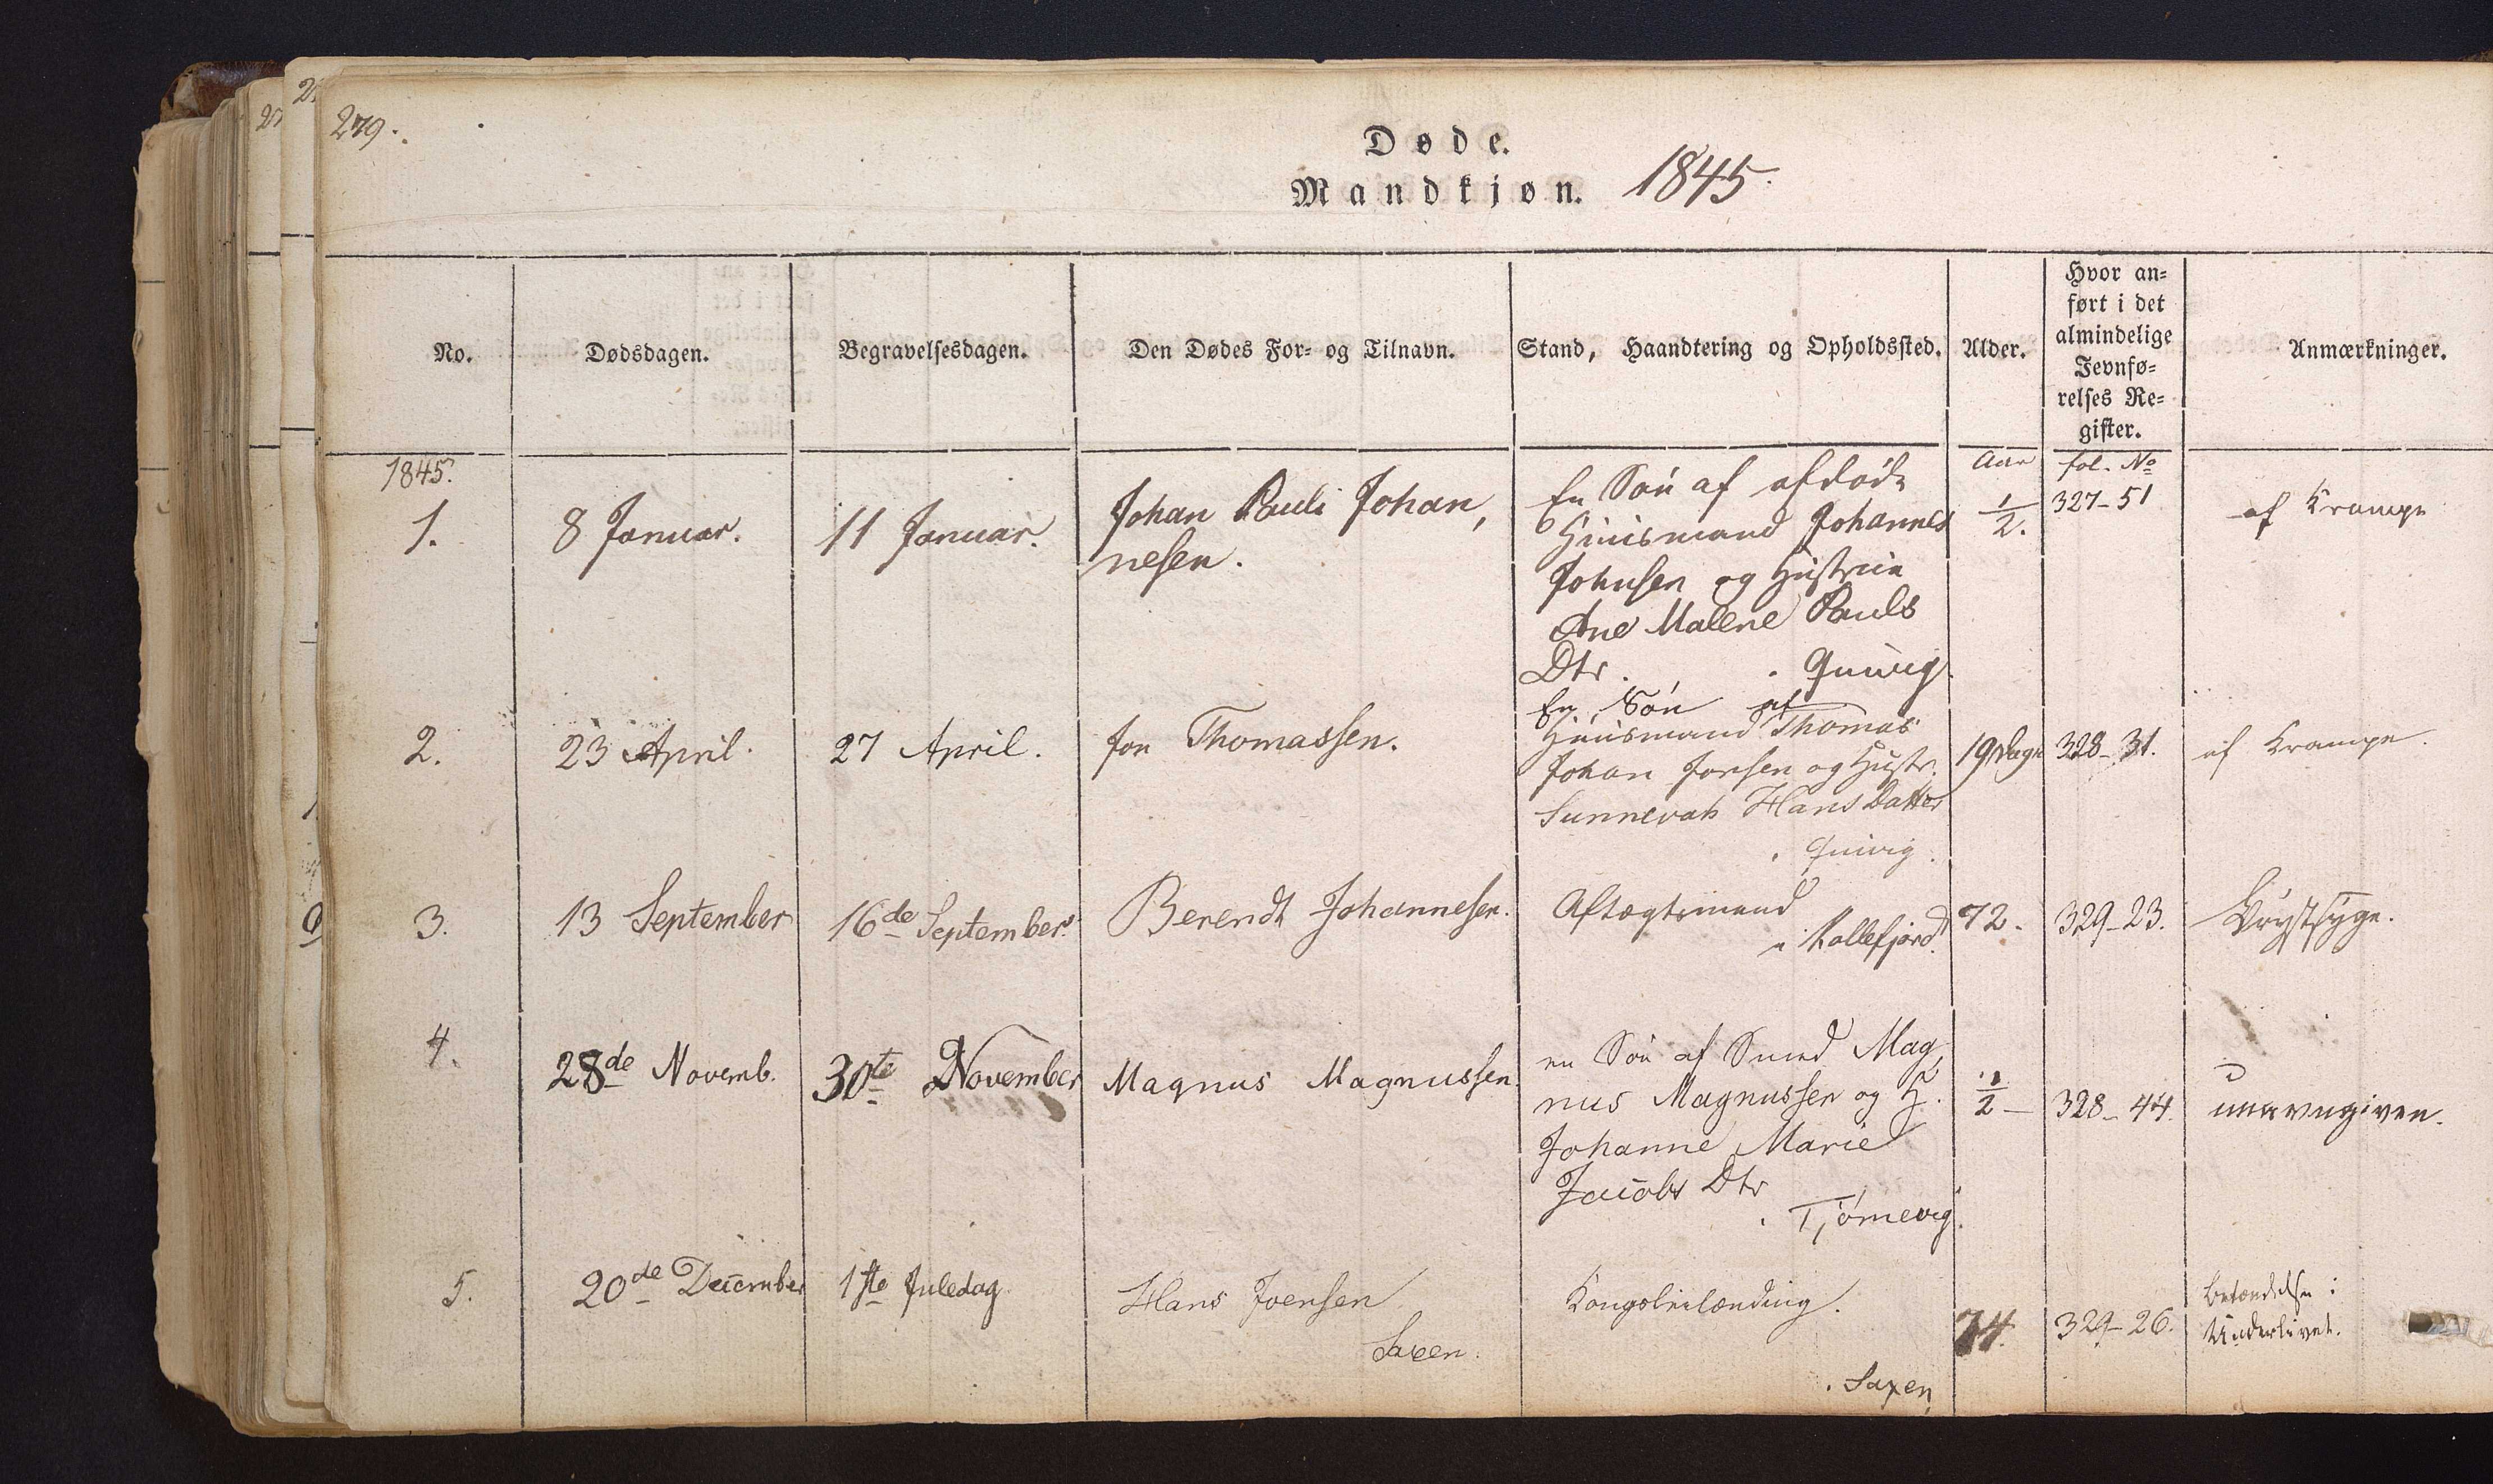 279.
Døde.
Mandkjøn. 1845.
No.
Dødsdagen.
Begravelsesdagen.
Den Dødes For- og Tilnavn.
Stand, Haandtering og Opholdssted.
Alder.
Hvor an=
ført i det
almindelige
Jevnfø=
relses Re=
gister.
Anmærkninger.
1845.
1.
8 Januar.
11 Januar.
Johan Pauli Johan,
nesen.
En Søn af afdøde
Huusmand Johannes
Johnsen og Hustrue
Ane Malene Pauls
Dtr. . Qvivig.
Aar
1/2.
fol. No
327-51
af Krampe
2.
23 April.
27 April.
Jon Thomassen.
En Søn af
Huusmand Thomas
Johan Jonsen og Hustr.
Sunnevah Hans Datter
. Qvivig.
19 Dage
328-31.
af Krampe.
3.
13 September
16de September.
Berendt Johannesen.
Aftægtsmand
i Kollefjord.
72.
329-23.
Brystsyge.
4.
28de Novemb.
30te November
Magnus Magnussen.
en Søn af Smed Mag,
nus Magnussen og H.
Johanne Marie
Jacobs Dtr
. Tjørnevig.
1/2
328-44.
unavngiven.
5.
20de December
1ste Juledag.
Hans Joensen
Saxen.
Kongsleilænding.
. Saxen,
74.
329-26.
Betændelse i
Underlivet.